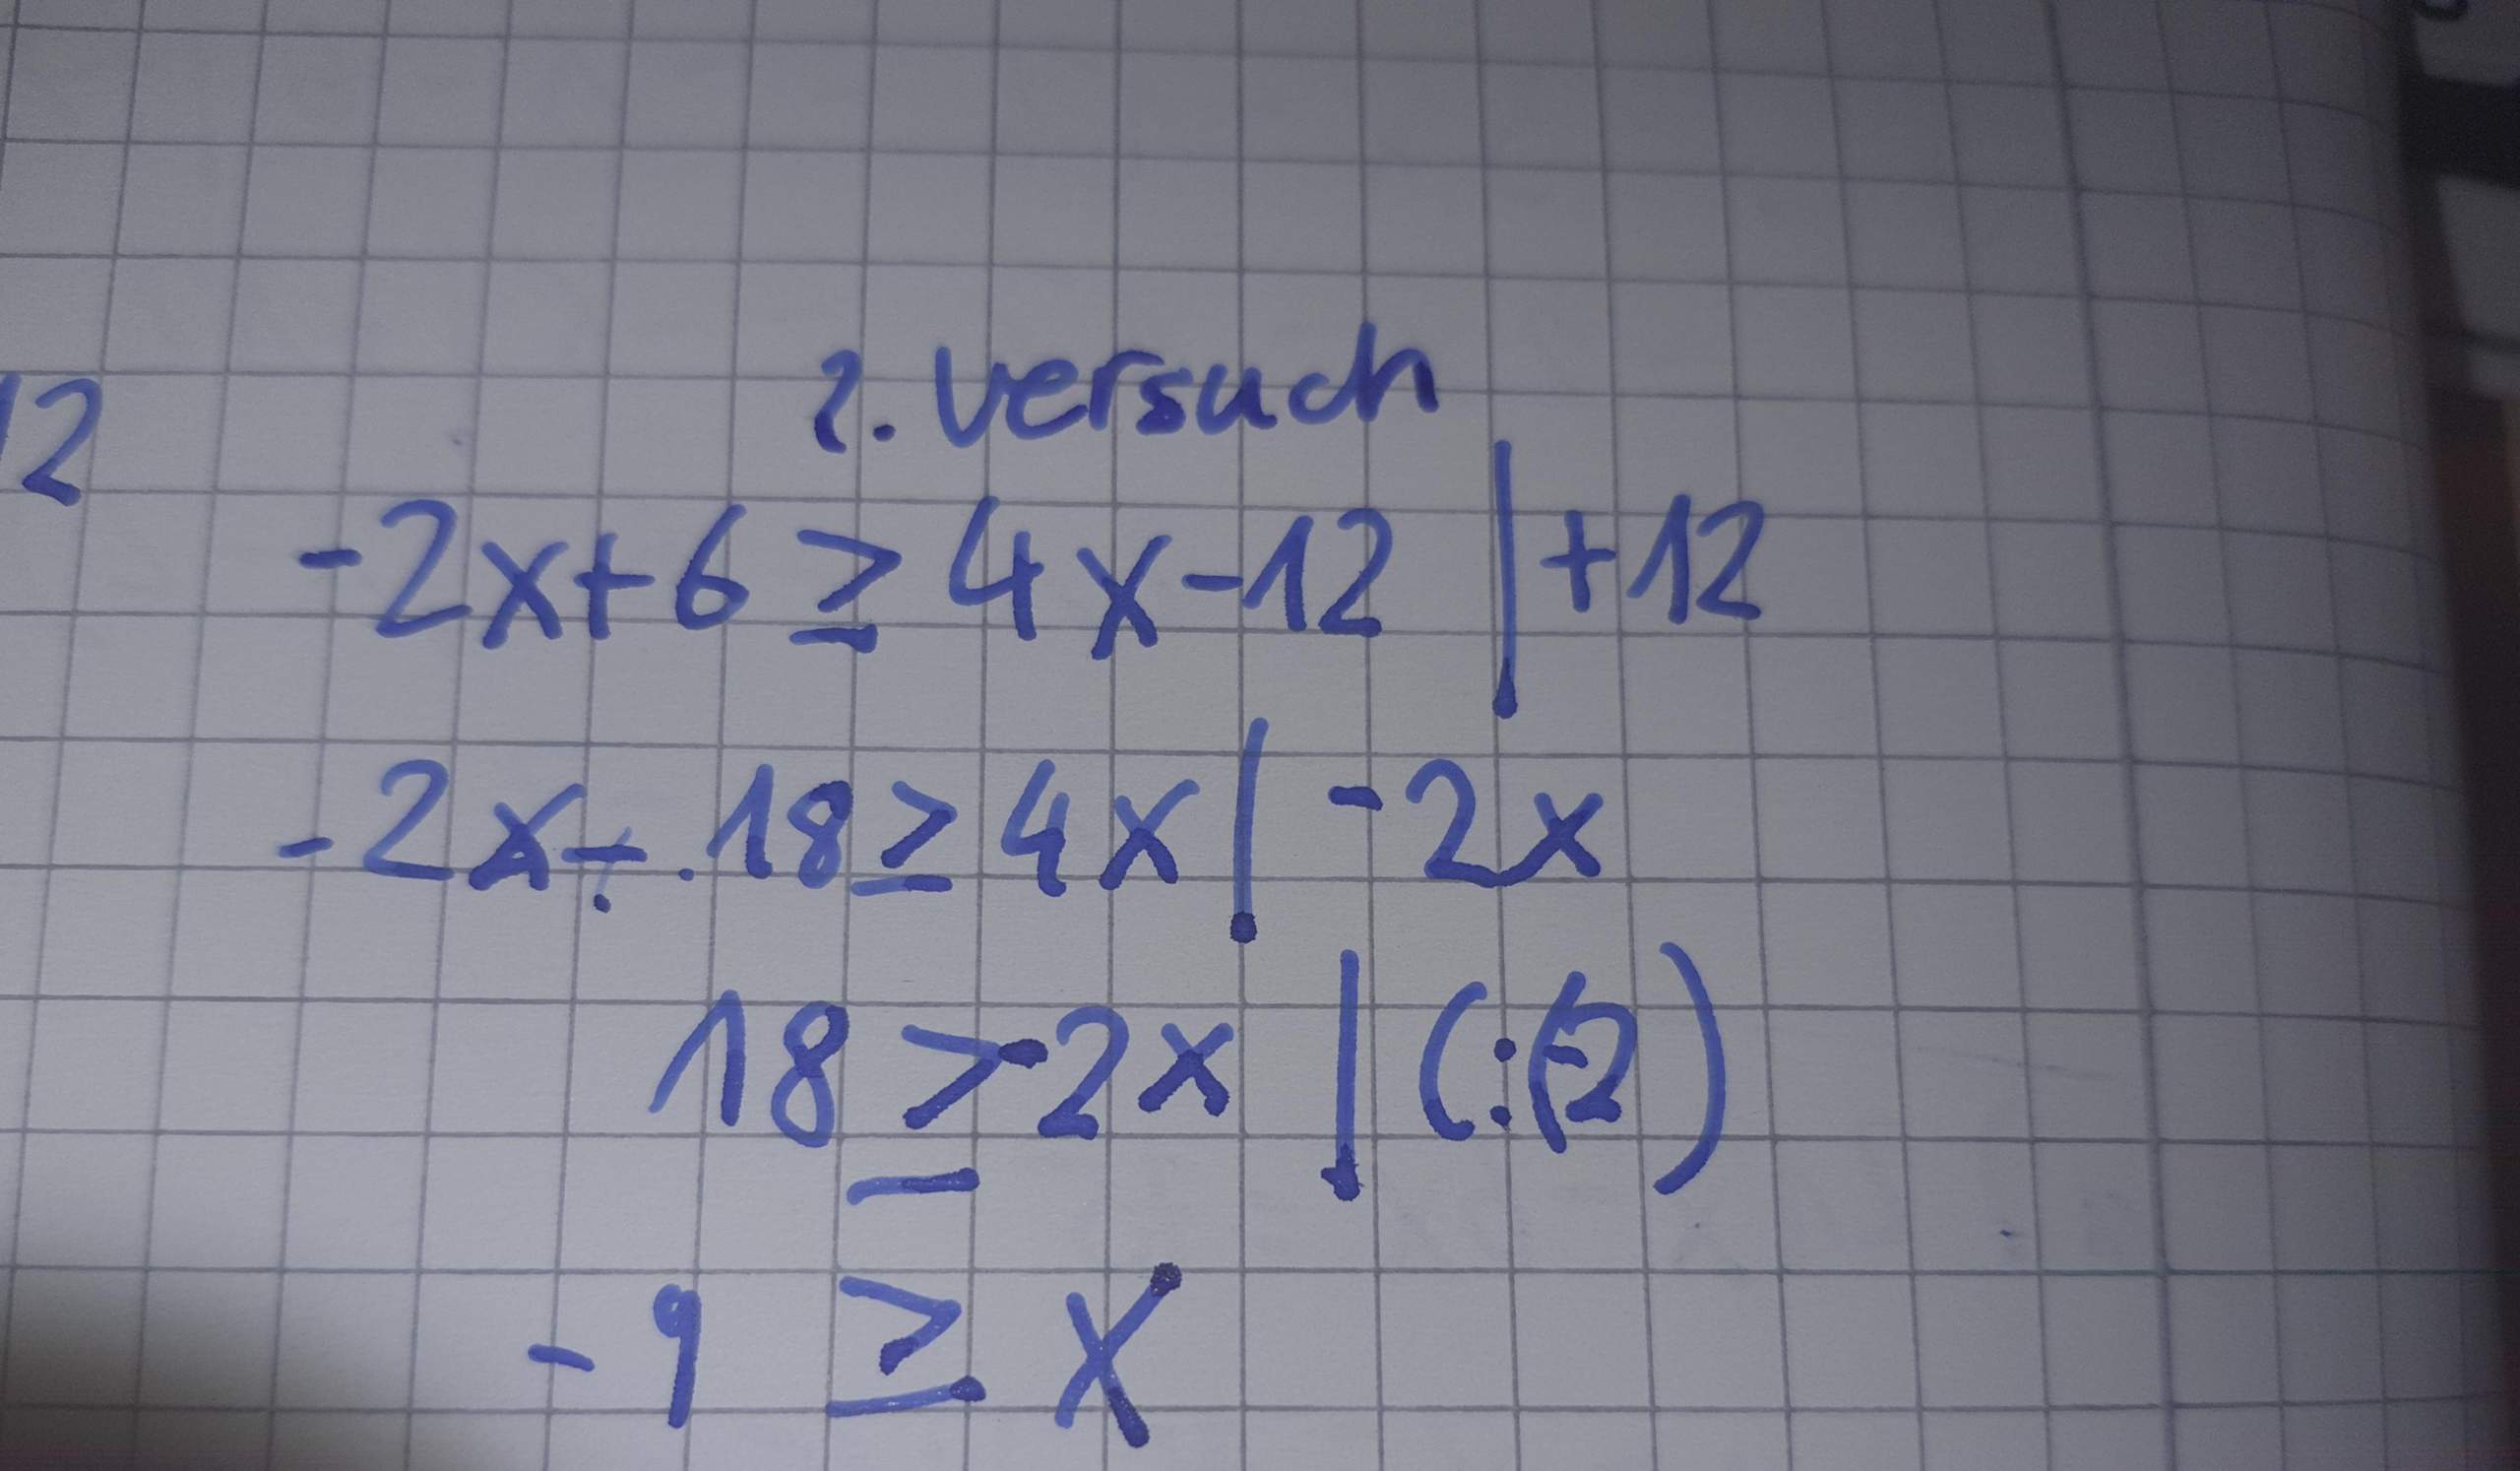 12
2. Versuch
-2x+6 ≥ 4x-12 | +12
-2x+ 18 ≥ 4x | -2x
18 ≥ -2x | (:(-2)
-9 ≥ x